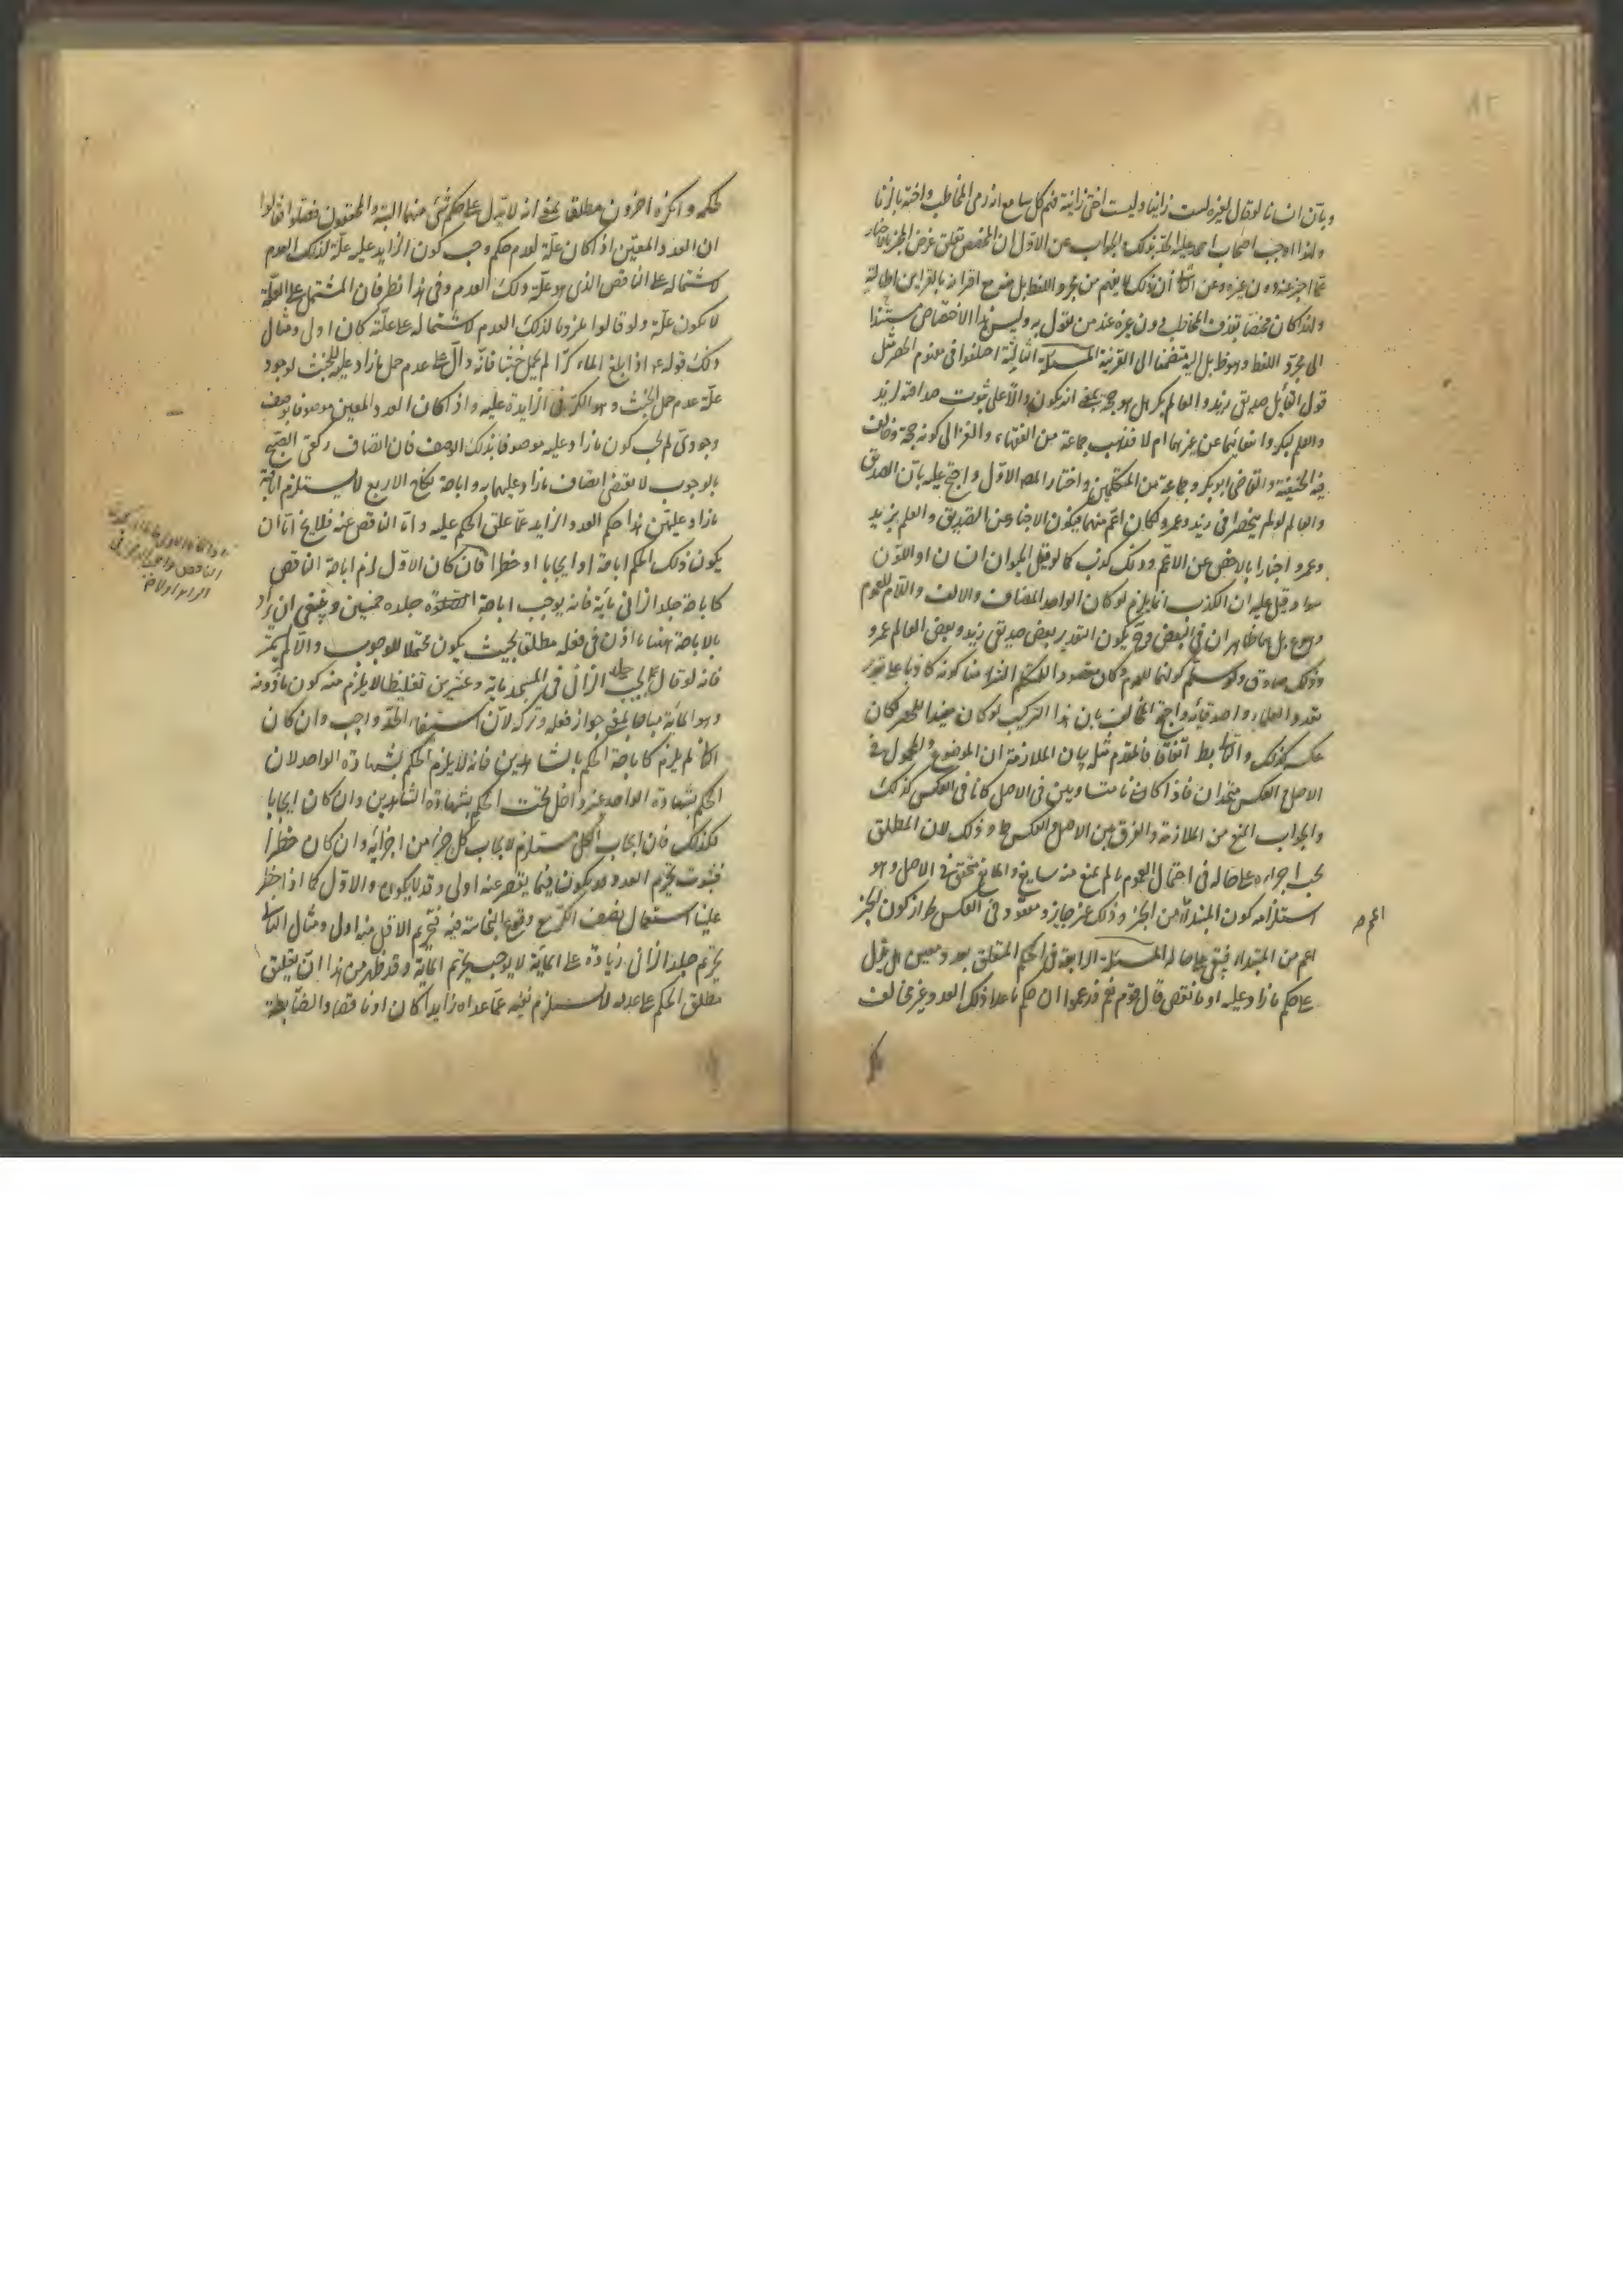 وبأن انسانا لوقال لغيره لست زانيا وليست اختى زانية فهم كل سامع انه رمى المخاطب واخته بالزنا
ولهذا اوجب اصحاب احمد عليه الحد بذلك والجواب عن الاول ان المخصص تعلق غرض المخبر بالاخبار
عما اخبر عنه دون غيره وعن الثانى ان ذلك لا يفهم من مجرد اللفظ بل منه مع اقترانه بالقراين الحالية
ولهذا كان مختصا بقذف المخاطب دون غيره عند من يقول به وليس هذا الاختصاص مستندا
الى مجرد اللفظ وهو ظ بل اليه منضما الى القرينة المسئلة الثالثة اختلفوا فى مفهوم الحصر مثل
قول القائل صديقى زيد والعالم بكر هل هو حجة بمعنى انه يكون دالا على ثبوت صداقة لزيد
والعلم لبكر وانتفائهما عن غيرهما ام لا فذهب جماعة من الفقهاء والغزالى الى كونه حجة وخالف
فيه الحنفية والقاضى ابو بكر وجماعة من المتكلمين واختار المص الاول واحتج عليه بأن الصديق
والعالم لو لم ينحصرا فى زيد وعمرو لكان اعم منهما فيكون الاخبار عن الصديق والعلم بزيد
وعمرو اخبارا بالاخص عن الاعم وذلك كذب كما لو قيل الحيوان انسان او اللون
سواد قيل عليه ان الكذب انما يلزم لو كان الواحد المضاف والالف واللام للعموم
وهو مم بل هما ظاهران فى البعض وح يكون التقدير بعض صديقى زيد وبعض العالم عمرو
وذلك صادق ولو سلم كونهما للعموم وكان مقصود المتكلم التزمنا كونه كاذبا على تقدير
تعدد العلماء واصدقائه واحتج المخالف بان هذا التركيب لو كان مفيدا للحصر لكان
عكسه كذلك والتالى بط اتفاقا فالمقدم مثله بيان الملازمة ان الموضوع والمحمول فى
الاصل والعكس متحدان فاذا كانا متساويين فى الاصل كانا فى العكس كذلك
والجواب المنع من الملازمة والفرق بين الاصل والعكس ظ وذلك لان المطلق
يجب اجراءه على حاله فى احتمال العموم ما لم يمنع منه مانع والمانع متحقق فى الاصل وهو
استلزامه كون المبتدأ اعم من الخبر وذلك غير جايز ومفقود فى العكس لجواز كون الخبر
اعم من المبتداء فيبقى على حاله المسئلة الرابعة فى الحكم المتعلق بعدد معين هل يدل
على حكم ما زاد عليه او ما نقص قال قوم نعم فزعموا ان حكم ما عدا ذلك العدد وغير مخالف
لحكمه وانكره اخرون مطلقا بمعنى انه لا يدل على حكم شئ منهما البتة والمحققون فصلوا فقالوا
ان العدد المعين اذا كان علة لعدم حكم وجب كون الزايد عليه علة لذلك العدم
لاشتماله على الناقص الذى هو علة ذلك العدم وفى هذا نظر فان المشتمل على العلة
لا يكون علة ولو قالوا ملزوما لذلك العدم لاشتماله على علته كان اولى ومثال
ذلك قوله ع اذا بلغ الماء كرا لم يحمل خبثا فانه دال على عدم حمل ما زاد عليه للخبث لوجود
علة عدم حمل الخبث وهو الكر فى الزايدة عليه واذا كان العدد المعين موصوفا بوصف
وجودى لم يجب كون ما زاد عليه موصوفا بذلك الوصف فان اتصاف ركعتى الصبح
بالوجوب لا يقتضى اتصاف ما زاد عليهما به واباحة نكاح الاربع لا يستلزم اباحة
ما زاد عليهن هذا حكم العدد الزايد عما علق الحكم عليه واما الناقص عنه فلا يخ اما ان
يكون ذلك الحكم اباحة او ايجابا او حظرا فان كان الاول لزم اباحة الناقص
كاباحة جلد الزانى مائة فانه يوجب اباحة جلده خمسين وينبغى ان يراد
بالاباحة هيهنا الاذن فى فعله مطلقا بحيث يكون محتملا للوجوب والا لم يتم
فانه لو قال يجب جلد الزانى فى المسجد ماية وعشرين تغليظا لا يلزم منه كون مادونه
وهو الماية مباحا بمعنى جواز فعله وتركه لأن استيفاء الحد واجب وان كان
الثانى لم يلزم كاباحة الحكم بالشاهدين فانه لا يلزم الحكم بشهادة الواحد لان
الحكم بشهادة الواحد غير داخل تحت الحكم بشهادة الشاهدين وان كان ايجابا
فكذلك فان ايجاب الكل مستلزم لايجاب كل جزء من اجزائه وان كان حظرا
فثبوت تحريم العدد قد يكون فيما ينقص عنه اولى وقد لا يكون والاول كما اذا حظر
علينا استعمال نصف الكر مع وقوع النجاسة فيه فتحريم الاقل منه اولى ومثال الثانى
تحريم جلد الزانى زيادة على الماية لا يوجب تحريم الماية وقد ظهر من هذا ان تعليق
مطلق الحكم على عدد لا يستلزم نفيه عما عداه زايدا كان او ناقصا والضابطة